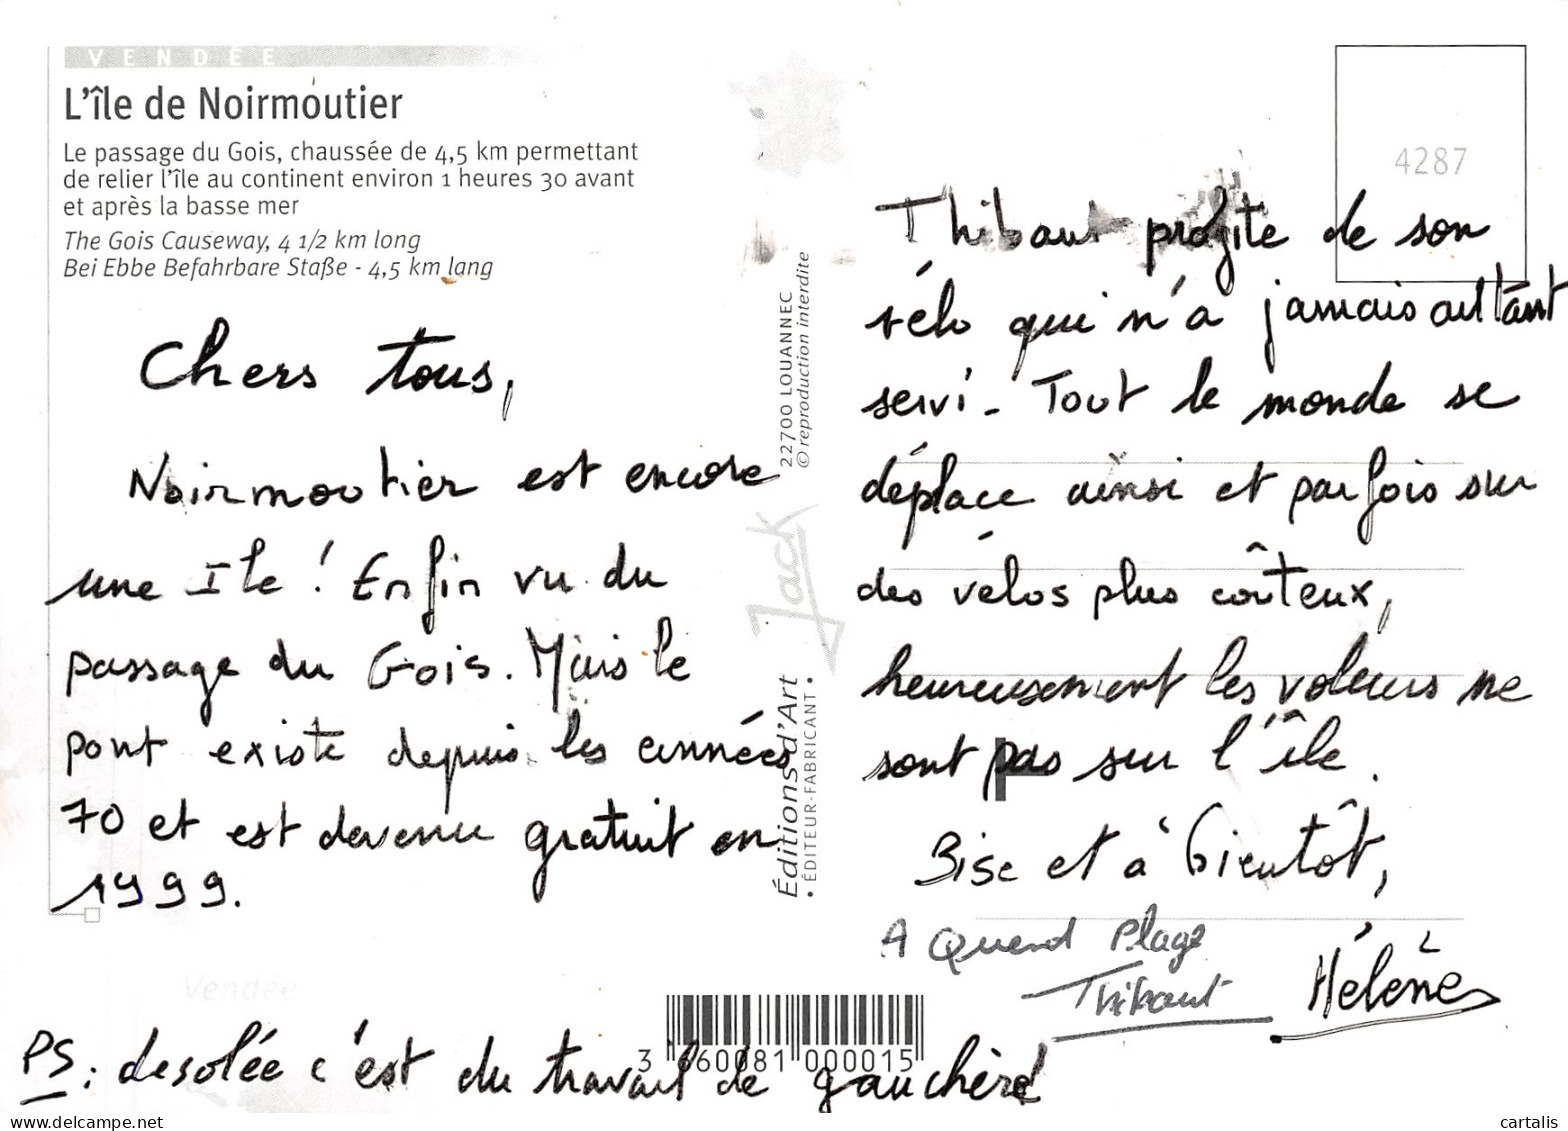 VENDÉE
L'île de Noirmoutier
Le passage du Gois, chaussée de 4,5 km permettant
de relier l'île au continent environ 1 heures 30 avant
et après la basse mer
The Gois Causeway, 4 1/2 km long
Bei Ebbe Befahrbare Staße - 4,5 km lang
Chers tous,
Noirmoutier est encore
une Ile ! Enfin vu du
passage du Gois. Mais le
pont existe depuis les années
70 et est devenu gratuit en
1999.
Vendée
PS : desolée c'est du travail de gauchère
22700 LOUANNEC
© reproduction interdite
Jack
Éditions d'Art
• ÉDITEUR-FABRICANT •
4287
Thibaut profite de son
vélo qui n'a jamais autant
servi - Tout le monde se
déplace ainsi et parfois sur
des vélos plus coûteux,
heureusement les voleurs ne
sont pas sur l'île.
Bise et à bientôt,
A Quend Plage
Thibaut
Hélène
3 660081 000015
delcampe.net
cartalis